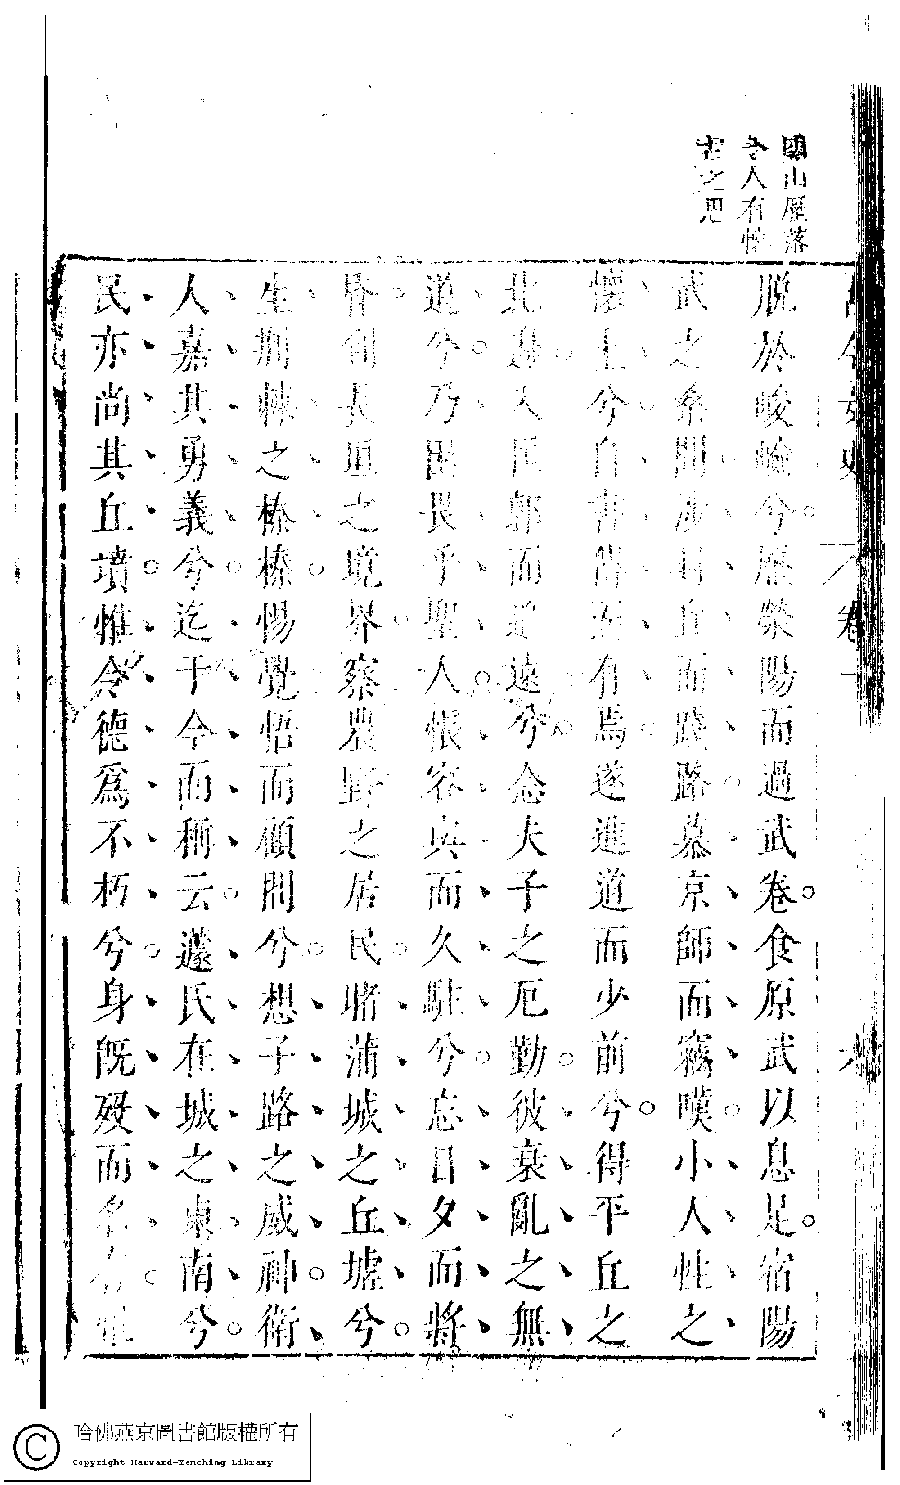 關山歷落
令人有懷
古之思
古今女史
卷一
脫於峻嶮兮歷滎陽而過武卷食原武以息足宿陽
武之桑間涉封丘而踐路慕京師而竊嘆小人性之
懷土兮自書傳而有焉遂進道而少前兮得平丘之
北邊入匡郭而追遠兮念夫子之厄勤彼衰亂之無
道兮乃困畏乎聖人悵容與而久駐兮忘日夕而將
昏到長垣之境界察農野之居民睹蒲城之丘墟兮
生荆棘之榛榛惕覺悟而顧問兮想子路之威神衛
人嘉其勇義兮迄于今而稱云蘧氏在城之東南兮
民亦尚其丘墳惟令德爲不朽兮身旣歿而名存惟
哈佛燕京圖書館版權所有
Copyright Harvard-Yenching Library